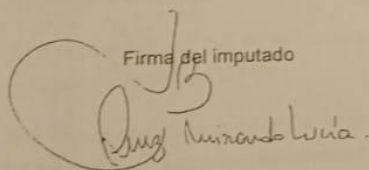 Firma del imputado
Cruz Miranda Lucía.